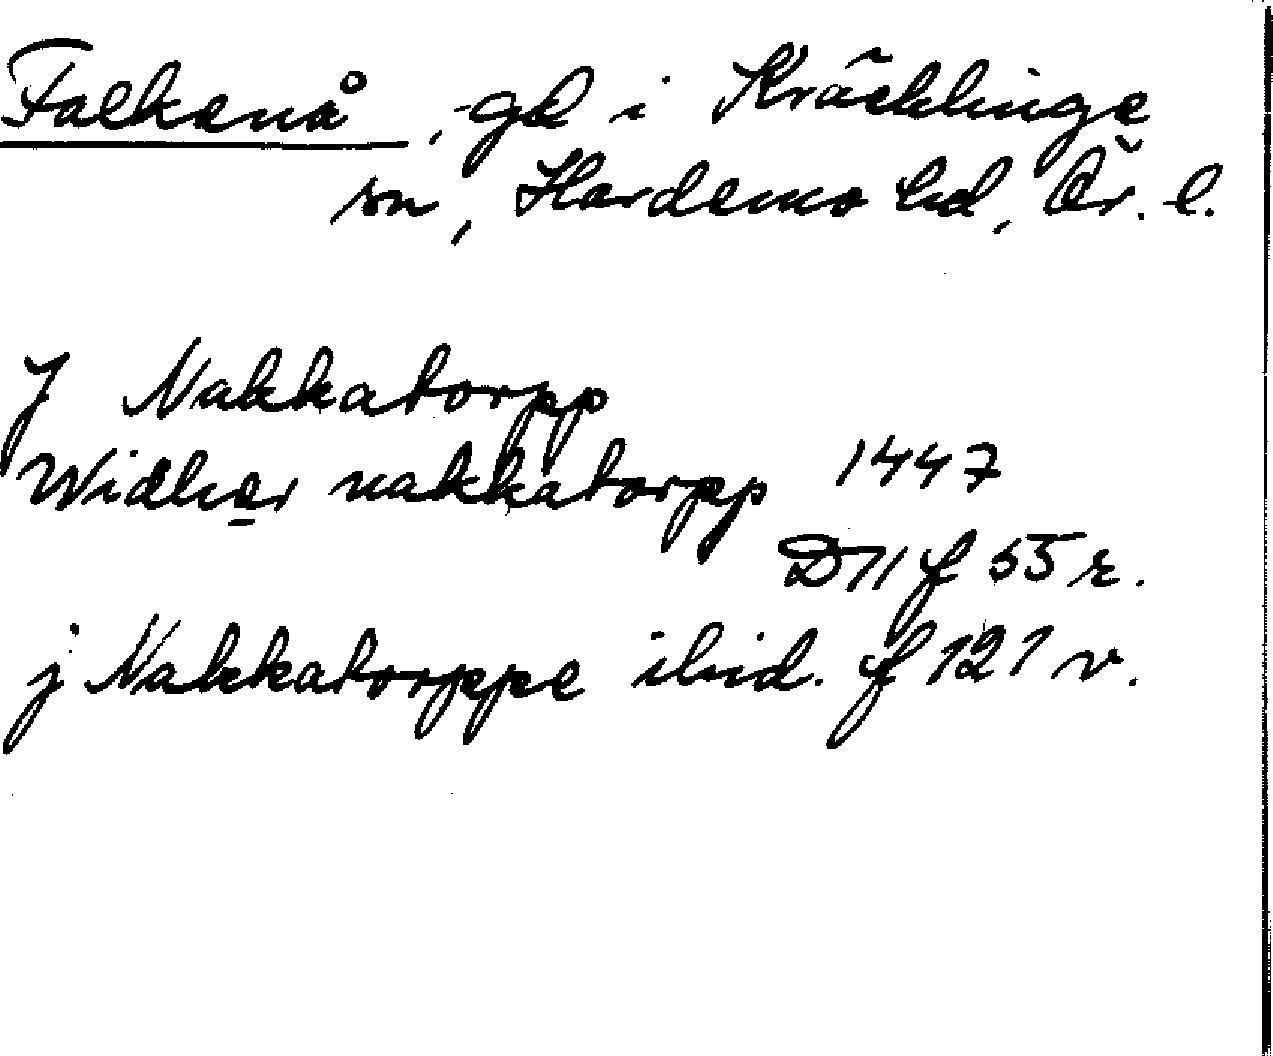 Falkenå, gd i Kräcklinge
sn, Hardemo hd, Ör. l.
J Nakkatorpp
Widher nakkatorpp 1447
D11 f 55 r.
j Nakkatorppe ibid. f 121 v.